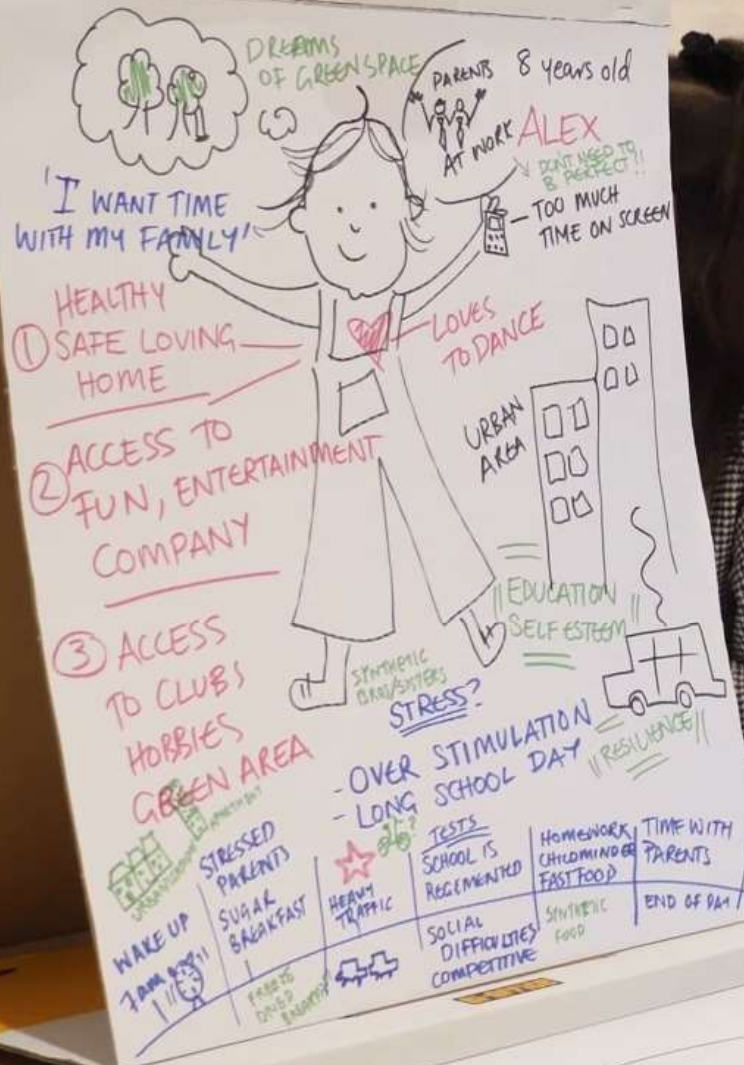 DREAMS
OF GREENSPACE
PARENTS
AT WORK
8 years old
ALEX
DONT NEED TO
B PERFECT!!
- TOO MUCH
TIME ON SCREEN
'I WANT TIME
WITH MY FAMILY'
① HEALTHY
SAFE LOVING
HOME
LOVES
TO DANCE
② ACCESS TO
FUN, ENTERTAINMENT
COMPANY
URBAN
AREA
③ ACCESS
TO CLUBS
HOBBIES
GREEN AREA
EDUCATION
SELF ESTEEM
SYNTHETIC
BROS/SISTERS
STRESS?
- OVER STIMULATION
- LONG SCHOOL DAY
RESILIENCE
APARTMENT
WAKE UP
7am
STRESSED
PARENTS
SUGAR
BREAKFAST
FREEZE
DRIED
BREAKFAST
?
HEAVY
TRAFFIC
TESTS
SCHOOL IS
REGEMENTED
SOCIAL
DIFFICULTIES
COMPETITIVE
HOMEWORK
CHILDMINDER
FAST FOOD
SYNTHETIC
FOOD
TIME WITH
PARENTS
END OF DAY